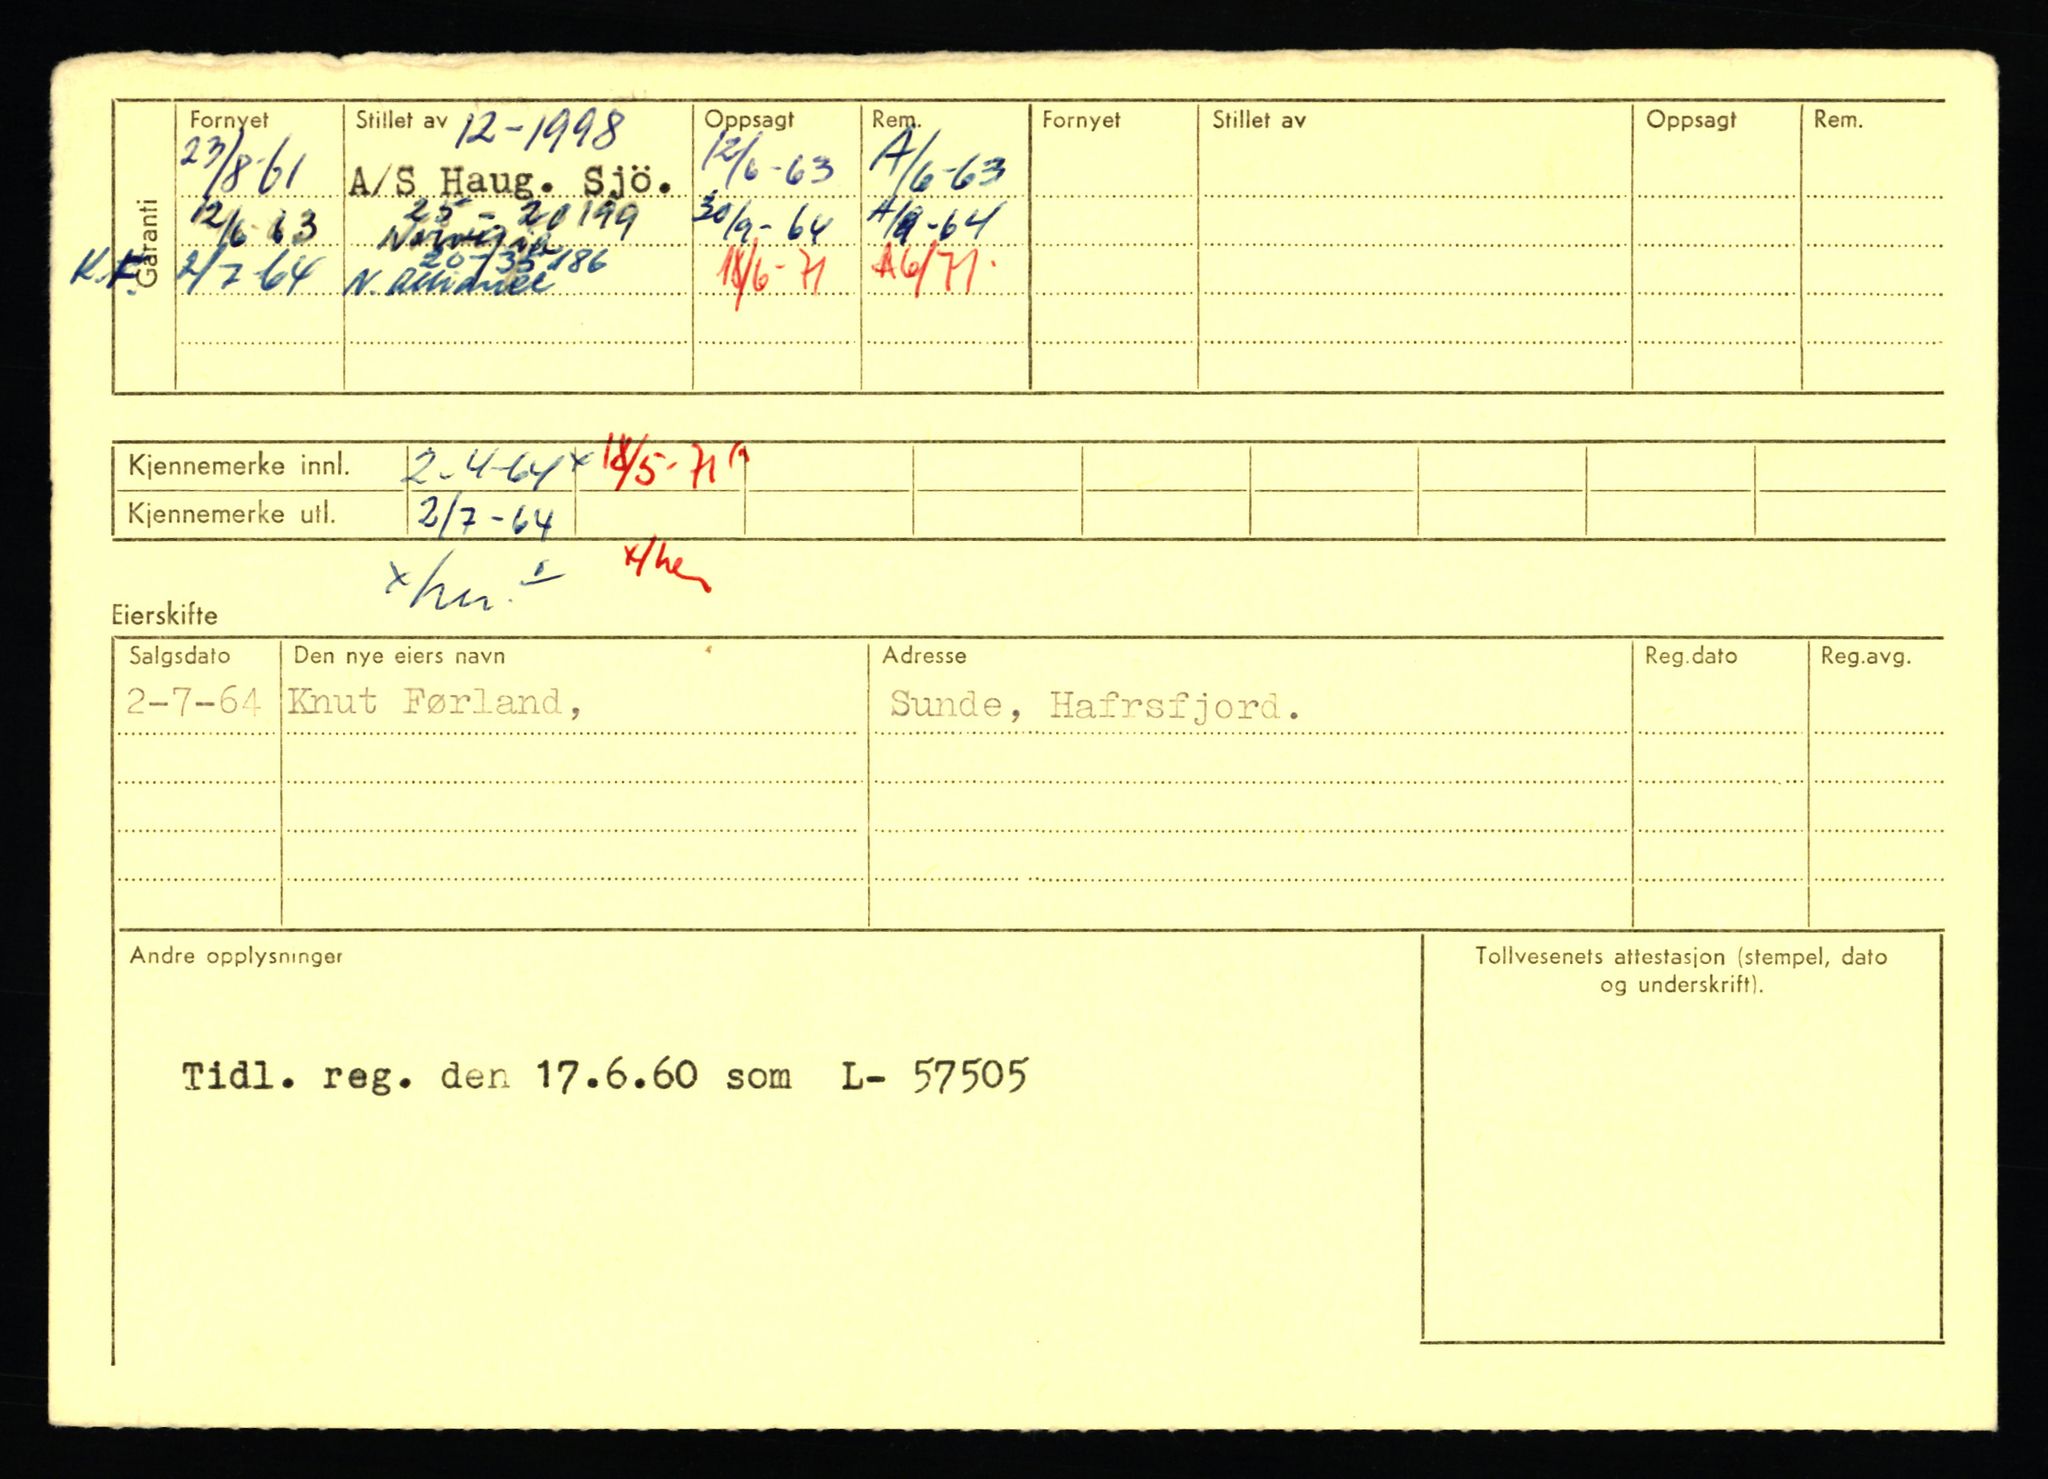 Garanti
Fornyet Stillet av 12-1998 Oppsagt Rem. Fornyet Stillet av Oppsagt Rem.
23/8-61 A/S Haug. Sjö. 12/6-63 A/6-63
12/6-63 25-20199 Norvegia 30/9-64 A/9-64
K.F. 2/7-64 20-35186 N. Alliance 18/6-71 A6/71.
Kjennemerke innl. 2-4-64 x 18/5-71
Kjennemerke utl. 2/7-64
x/her. x/her
Eierskifte
Salgsdato Den nye eiers navn Adresse Reg.dato Reg.avg.
2-7-64 Knut Førland, Sunde, Hafrsfjord.
Andre opplysninger
Tollvesenets attestasjon (stempel, dato
og underskrift).
Tidl. reg. den 17.6.60 som L- 57505